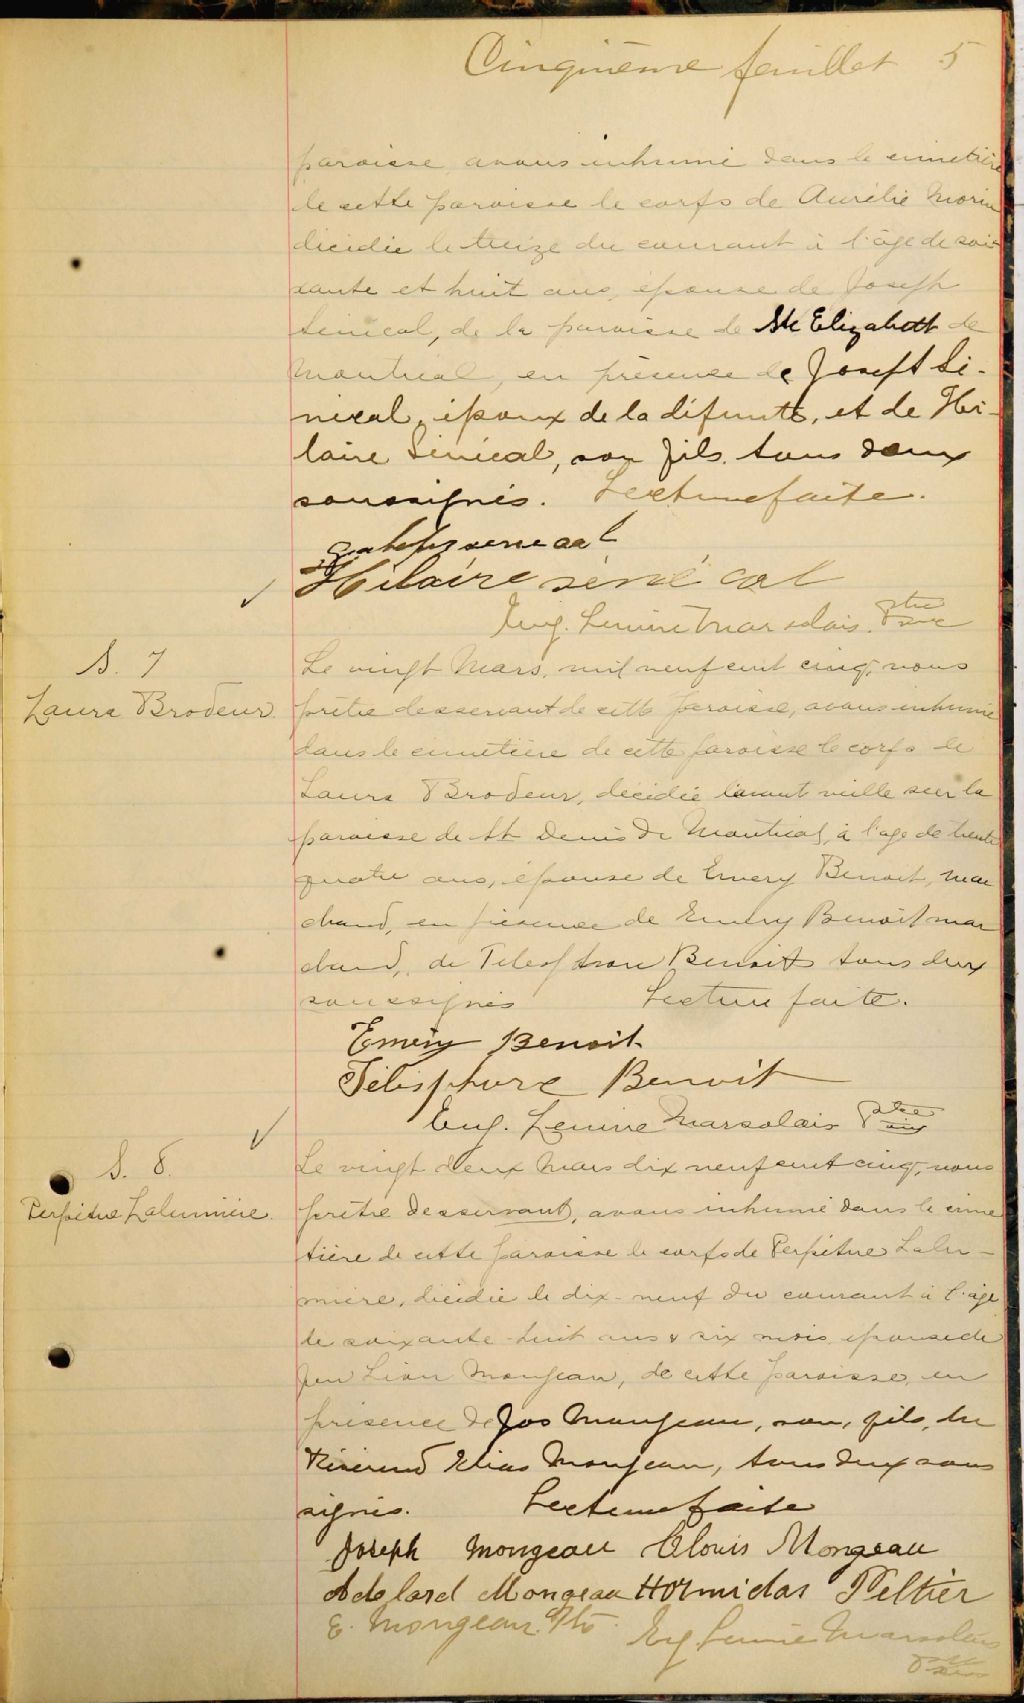 Cinquième feuillet 5
paroisse avons inhumé dans le cimetière
de cette paroisse le corps de Aurélie Morin
décédée le treize du courant à l'âge de soi-
xante et huit ans, épouse de Joseph
Sénécal, de la paroisse de Ste Elizabeth de
Montréal, en présence de Joseph Sé-
nécal, époux de la défunte, et de Hi-
laire Sénécal, son fils tous deux
soussignés. Lecture faite.
senecal
Hilaire sénécal
Eug. Lemire Marsolais. ptre
S. 7
Laura Brodeur.
Le vingt Mars, mil neuf cent cinq, nous
prêtre desservant de cette paroisse, avons inhumé
dans le cimetière de cette paroisse le corps de
Laura Brodeur, décédée l'avant veille sur la
paroisse de St Denis de Montréal, à l'age de trente
quatre ans, épouse de Emery Benoit, mar
chand, en présence de Emery Benoit mar
chand, de Télesphore Benoit tous deux
soussignés Lecture faite.
Emery Benoit
Télésphore Benoit
Eug. Lemire Marsolais Ptre
S. 8.
Perpétue Lalumière.
Le vingt deux Mars dix neuf cent cinq, nous
prêtre desservant, avons inhumé dans le cime
tière de cette paroisse le corps de Perpétue Lalu-
mière, décédée le dix-neuf du courant à l'âge
de soixante-huit ans & six mois épouse de
feu Léon Mongeau, de cette paroisse, en
présence de Jos Mongeau, son, fils, du
Révérend Elias Mongeau, tous deux sous
signés. Lecture faite
Joseph Mongeau Clouis Mongeau
Adelard Mongeau Hormidas Peltier
E. Mongeau. Ptre
Eug Lemire Marsolais